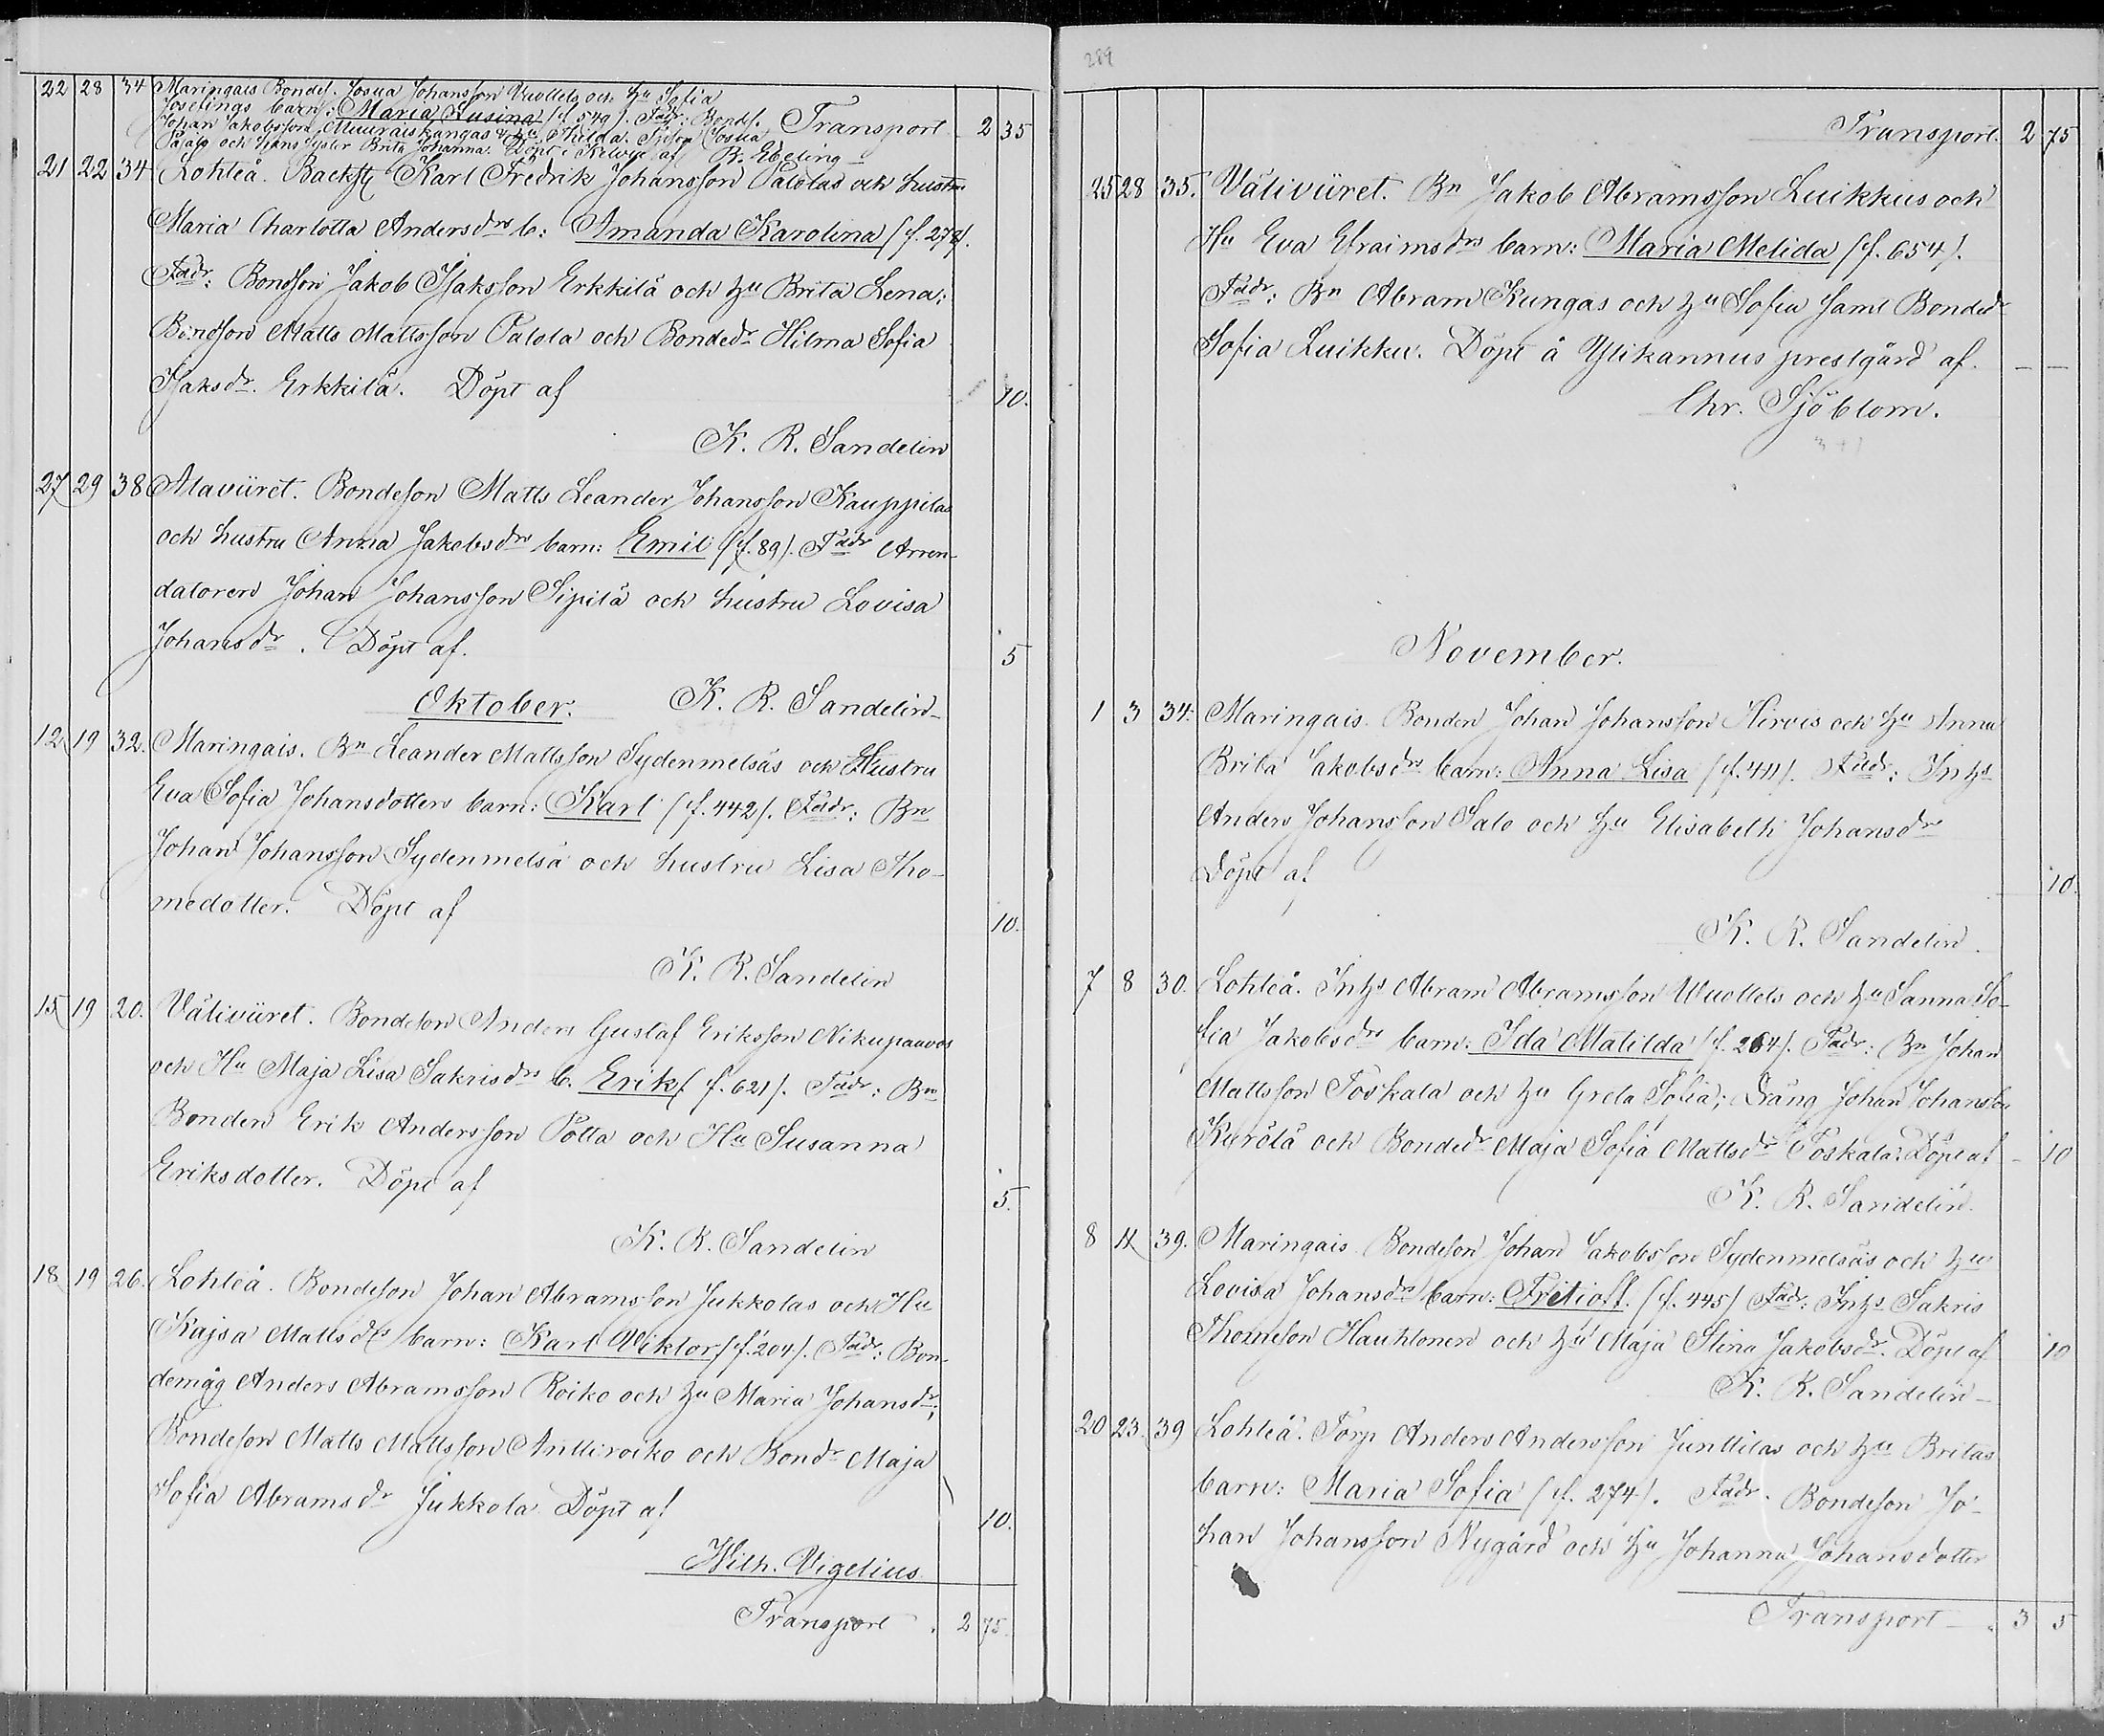 22 28 34 Maringais Bondes. Josua Johansson Vuollets och hu Sofia
Joselings barn: Maria Lusina (f. 549). Fadr: Bonds.
Johan Jakobsson Muuraiskangas & hu Thilda. Josua Transport 2 35
Pajala och hans syster Brita Johanna. Döpt i Kelviå af R. Ebeling
21 22 34 Lohteå. Backst Karl Fredrik Johansson Palolas och hustru
Maria Charlotta Andersdrs b: Amanda Karolina (f. 278).
Fadr: Bondson Jakob Isaksson Erkkilä och hu Brita Lena;
Bondson Matts Mattsson Palola och Bondedr Hilma Sofia
Isaksdr. Erkkilä. Döpt af 10.
K. R. Sandelin
27 29 38 Alaviiret. Bondeson Matts Leander Johansson Kauppilas
och hustru Anna Jakobsdrs barn: Emil (f. 89). Fadr Arren-
datoren Johan Johansson Sipilä och hustru Lovisa
Johansdr. Döpt af. 5
Oktober. K. R. Sandelin
12 19 32. Maringais. Bn Leander Mattsson Sydenmetsäs och Hustru
Eva Sofia Johansdotters barn: Karl (f. 442). Fadr: Bn
Johan Johansson Sydenmetsä och hustru Lisa Tho-
medotter. Döpt af 10.
K. R. Sandelin
15 19 20. Väliviiret. Bondeson Anders Gustaf Eriksson Nikupaavos
och Hu Maja Lisa Sakrisdrs b. Erik (f. 621). Fadr: Bn
Bonden Erik Andersson Potta och Hu Susanna
Eriksdotter. Döpt af 5.
K. R. Sandelin
18 19 26. Lohteå. Bondeson Johan Abramsson Jukkolas och Hu
Kajsa Mattsdrs barn: Karl Viktor (f. 204). Fadr: Bon-
demåg Anders Abramsson Roiko och hu Maria Johansdr;
Bondeson Matts Mattsson Anttiroiko och Bondr Maja
Sofia Abramsdr Jukkola Döpt af 10.
Wilh. Vigelius
Transport. 2 75.
289
Transport. 2 75
25 28 35. Väliviiret. Bn Jakob Abramsson Luikkus och
Hu Eva Efraimsdrs barn: Maria Melida (f. 654).
Fadr: Bn Abram Kungas och hu Sofia samt Bondedr
Sofia Luikku. Döpt å Ylikannus prestgård af. — —
Chr. Sjöblom.
3+1
November.
1 3 34. Maringais. Bonden Johan Johansson Hirvis och hu Anna
Brita Jakobsdrs barn: Anna Lisa (f. 411). Fadr: Inhs
Anders Johansson Salo och hu Elisabeth Johansdr
Döpt af 10.
K. R. Sandelin.
7 8 30. Lohteå. Inhs Abram Abramsson Wuollets och hu Sanna So-
fia Jakobsdrs barn: Ida Matilda (f. 264). Fadr: Bn Johan
Mattsson Toskala och hu Greta Sofia; Dräng Johan Johansson
Kurölä och Bondedr Maja Sofia Mattsdr Toskala. Döpt af 10
K. R. Sandelin.
8 11 39. Maringais Bondeson Johan Jakobsson Sydenmetsäs och hu
Lovisa Johansdrs barn: Fritioff. (f. 445) Fadr: Inhs Sakris
Thomeson Hauhtonen och hu Maja Stina Jakobsdr. Döpt af 10
K. R. Sandelin
20 23. 39 Lohteå. Torp Anders Andersson Junttilas och hu Britas
barn: Maria Sofia (f. 274). Fadr. Bondeson Jo-
han Johansson Nygård och hu Johanna Johansdotter
Transport 3 5